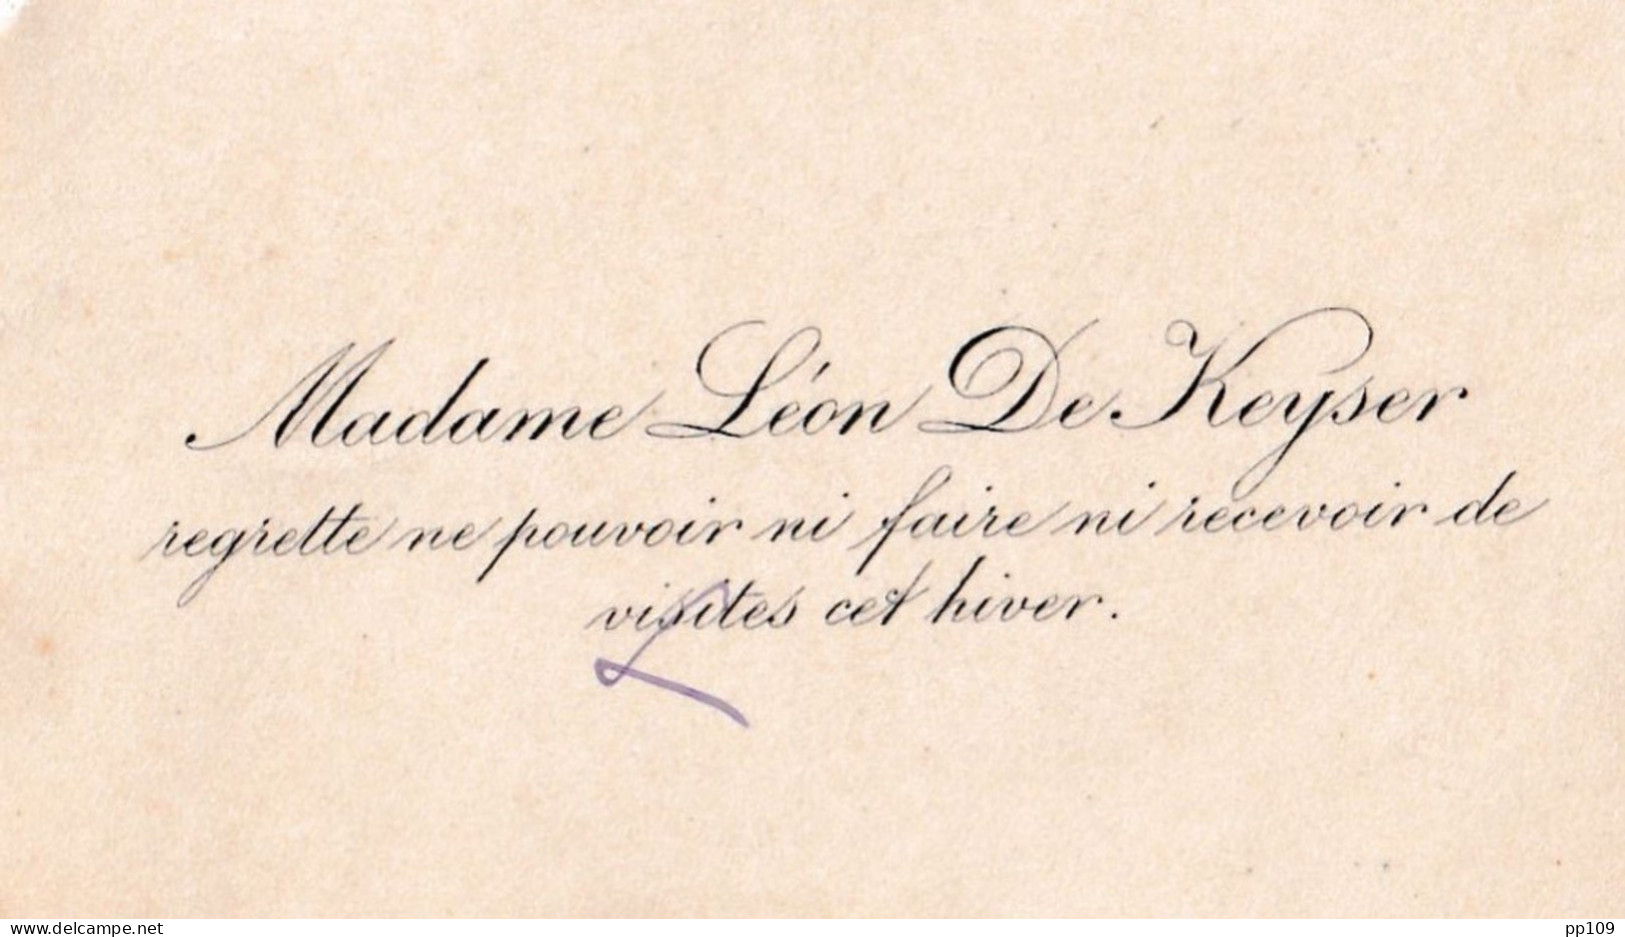 Madame Léon De Keyser
regrette ne pouvoir ni faire ni recevoir de
visites cet hiver.
www.delcampe.net
pp109